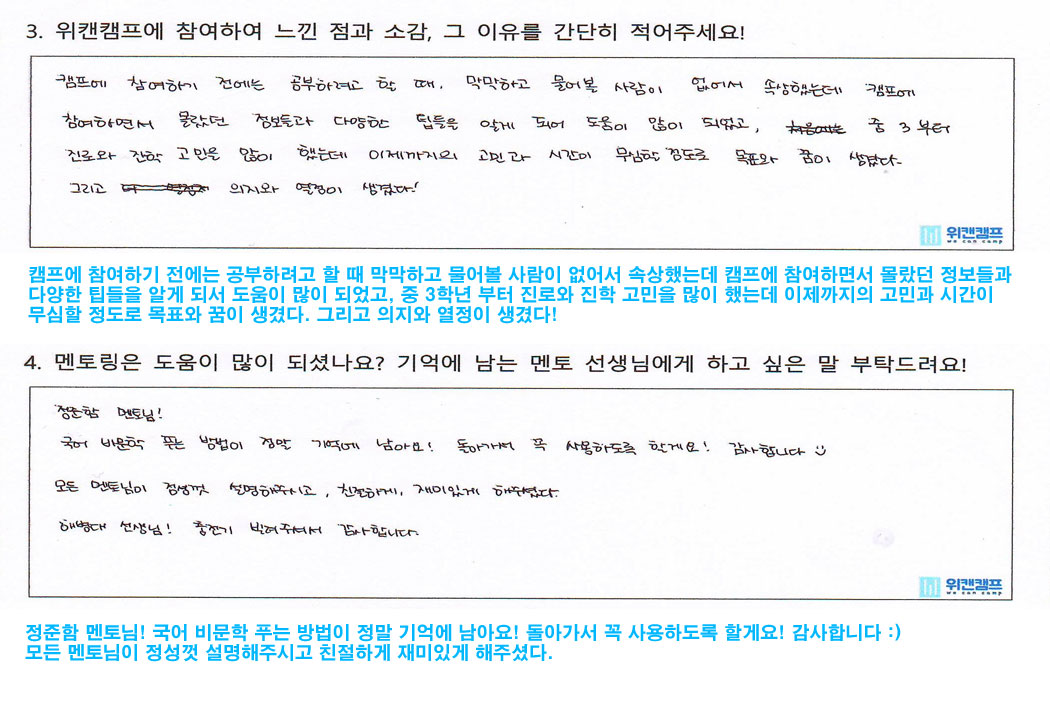 3. 위캔캠프에 참여하여 느낀 점과 소감, 그 이유를 간단히 적어주세요!
캠프에 참여하기 전에는 공부하려고 할 때, 막막하고 물어볼 사람이 없어서 속상했는데 캠프에
참여하면서 몰랐던 정보들과 다양한 팁들을 알게 되어 도움이 많이 되었고, 중 3부터
진로와 진학 고민을 많이 했는데 이제까지의 고민과 시간이 무심할 정도로 목표와 꿈이 생겼다.
그리고 의지와 열정이 생겼다!
위캔캠프
we can camp
캠프에 참여하기 전에는 공부하려고 할 때 막막하고 물어볼 사람이 없어서 속상했는데 캠프에 참여하면서 몰랐던 정보들과
다양한 팁들을 알게 되서 도움이 많이 되었고, 중 3학년 부터 진로와 진학 고민을 많이 했는데 이제까지의 고민과 시간이
무심할 정도로 목표와 꿈이 생겼다. 그리고 의지와 열정이 생겼다!
4. 멘토링은 도움이 많이 되셨나요? 기억에 남는 멘토 선생님에게 하고 싶은 말 부탁드려요!
정준함 멘토님!
국어 비문학 푸는 방법이 정말 기억에 남아요! 돌아가서 꼭 사용하도록 할게요! 감사합니다 :)
모든 멘토님이 정성껏 설명해주시고, 친절하게, 재미있게 해주셨다.
해병대 선생님! 충전기 빌려주셔서 감사합니다.
위캔캠프
we can camp
정준함 멘토님! 국어 비문학 푸는 방법이 정말 기억에 남아요! 돌아가서 꼭 사용하도록 할게요! 감사합니다 :)
모든 멘토님이 정성껏 설명해주시고 친절하게 재미있게 해주셨다.